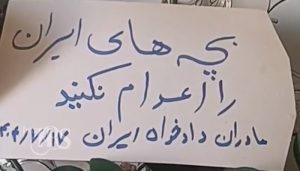 بچه های ایران
را اعدام نکنید
مادران دادخواه ایران ۴۰۴/۷/۱۷